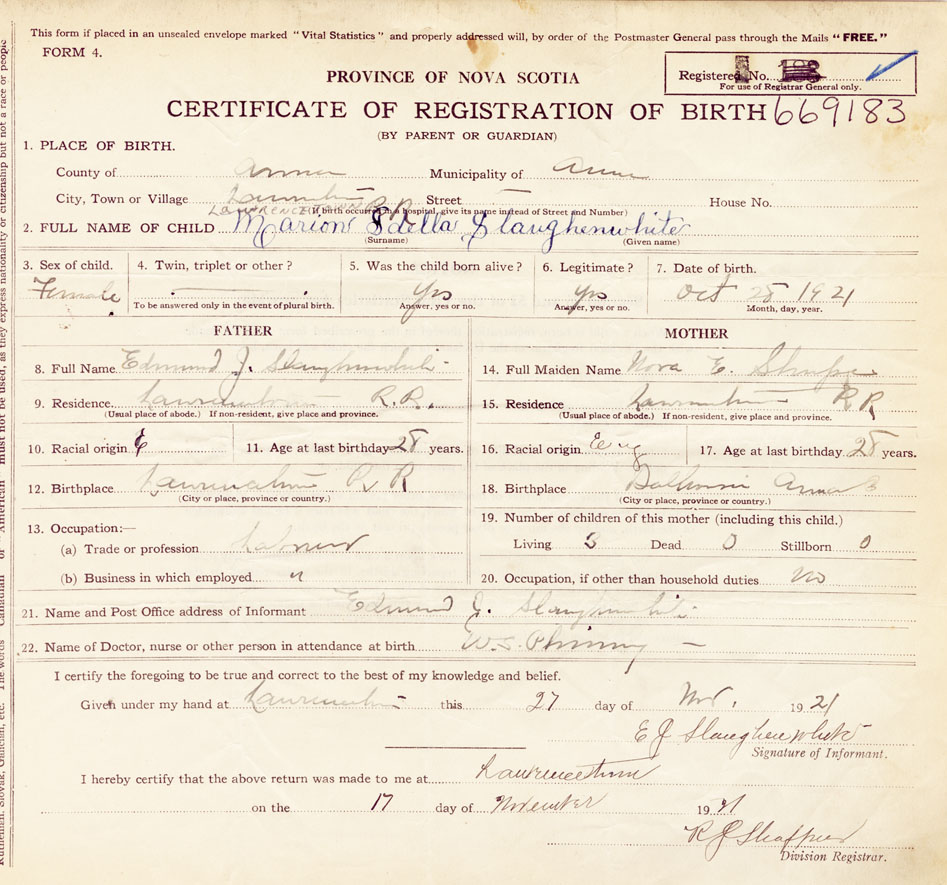 This form if placed in an unsealed envelope marked "Vital Statistics" and properly addressed will, by order of the Postmaster General pass through the Mails "FREE."
FORM 4.
PROVINCE OF NOVA SCOTIA
Registered No.
For use of Registrar General only.
CERTIFICATE OF REGISTRATION OF BIRTH 669183
(BY PARENT OR GUARDIAN)
1. PLACE OF BIRTH.
County of Anna Municipality of Anna
City, Town or Village Lawrencetown Street — House No.
LAWRENCETOWN R R (If birth occurred in a hospital, give its name instead of Street and Number)
2. FULL NAME OF CHILD Marion Idella Slaughenwhite
(Surname) (Given name)
3. Sex of child. 4. Twin, triplet or other? 5. Was the child born alive? 6. Legitimate? 7. Date of birth.
Female — Yes Yes Oct 28 1921
To be answered only in the event of plural birth. Answer, yes or no. Answer, yes or no. Month, day, year.
FATHER MOTHER
8. Full Name Edmund J. Slaughenwhite 14. Full Maiden Name Nora E. Sharpe
9. Residence Lawrencetown R.R. 15. Residence Lawrencetown R R
(Usual place of abode.) If non-resident, give place and province. (Usual place of abode.) If non-resident, give place and province.
10. Racial origin E 11. Age at last birthday 28 years. 16. Racial origin Eng 17. Age at last birthday 28 years.
12. Birthplace Lawrencetown R R 18. Birthplace Dalhousie Anna
(City or place, province or country.) (City or place, province or country.)
13. Occupation:— 19. Number of children of this mother (including this child.)
(a) Trade or profession Labourer Living 5 Dead 0 Stillborn 0
(b) Business in which employed " 20. Occupation, if other than household duties No
21. Name and Post Office address of Informant Edmund J. Slaughenwhite
22. Name of Doctor, nurse or other person in attendance at birth W. S. Phinney —
I certify the foregoing to be true and correct to the best of my knowledge and belief.
Given under my hand at Lawrencetown this 27 day of Nov. 1921
E J Slaughenwhite
Signature of Informant.
I hereby certify that the above return was made to me at Lawrencetown
on the 17 day of November 1921
R J Shaffner
Division Registrar.